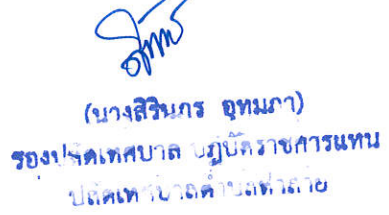 (นางสิรินกร อุทมภา)
รองปลัดเทศบาล ปฏิบัติราชการแทน
ปลัดเทศบาลตำบล